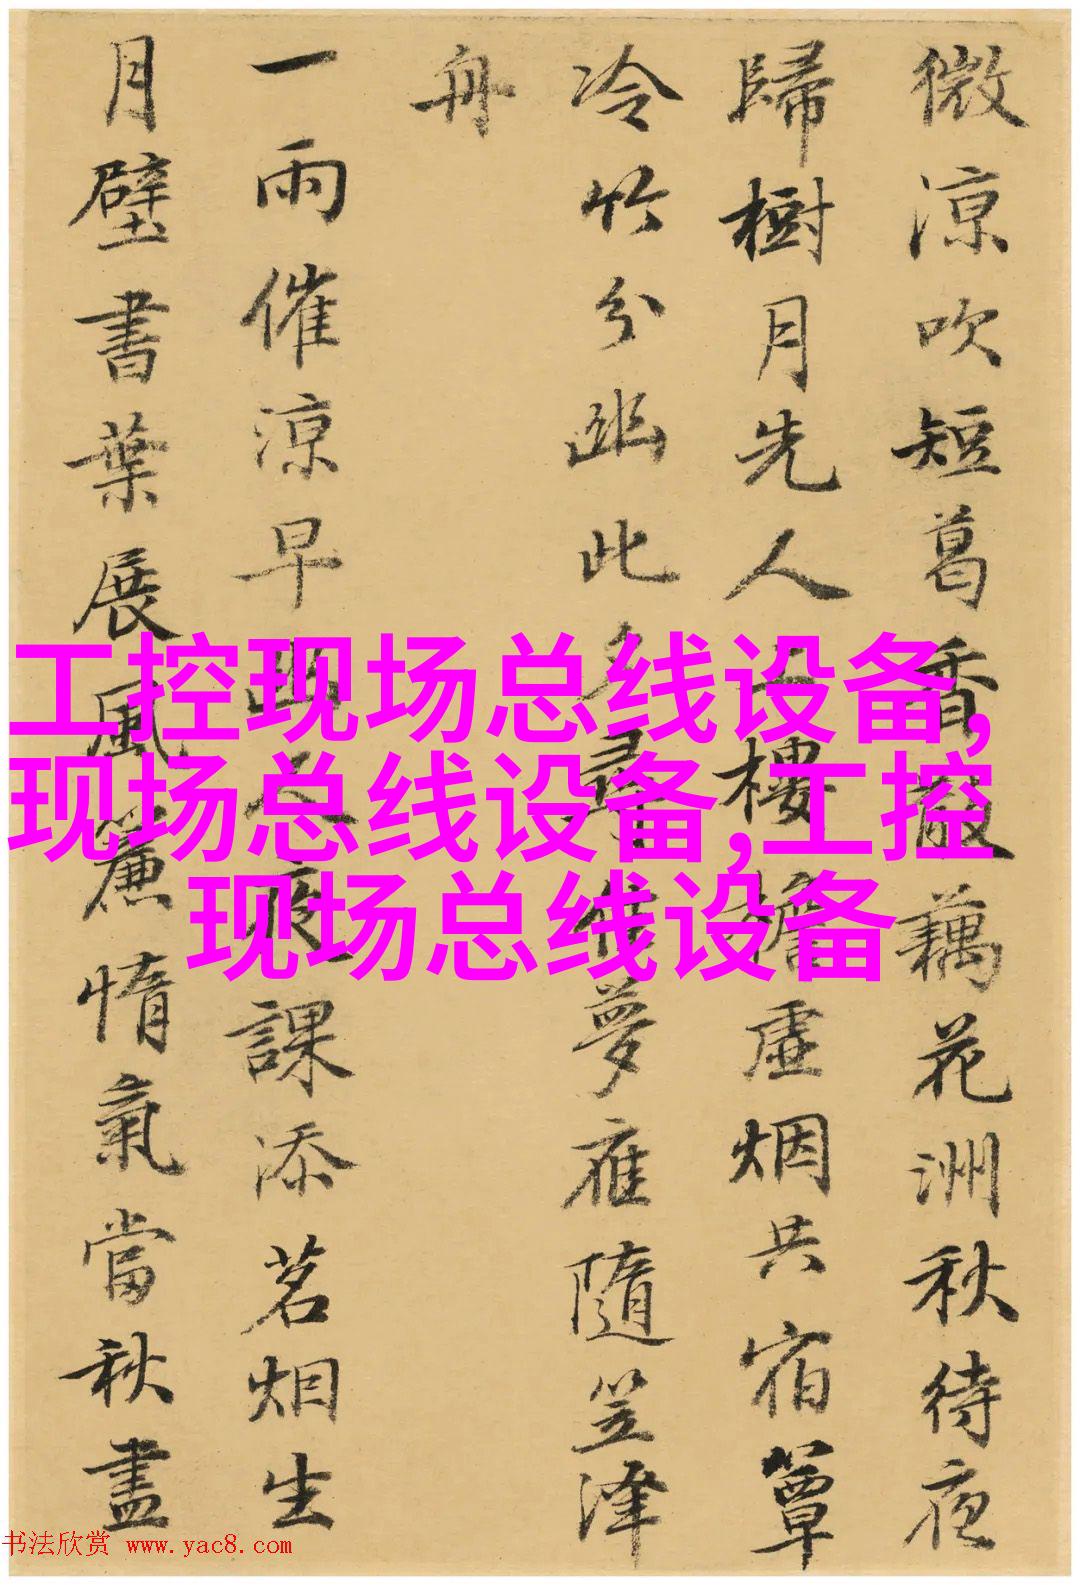 微涼吹短葛香散藕花洲秋待夜
歸樹月先人上樓檐虛烟共宿簟
冷竹分幽此多尋夢隨笠澤
舟
一雨催涼早幽人夜課添茗烟生
月壁書葉展風簾惰氣當秋盡
工控现场总线设备,
现场总线设备,工控
现场总线设备
书法欣赏 www.yac8.com